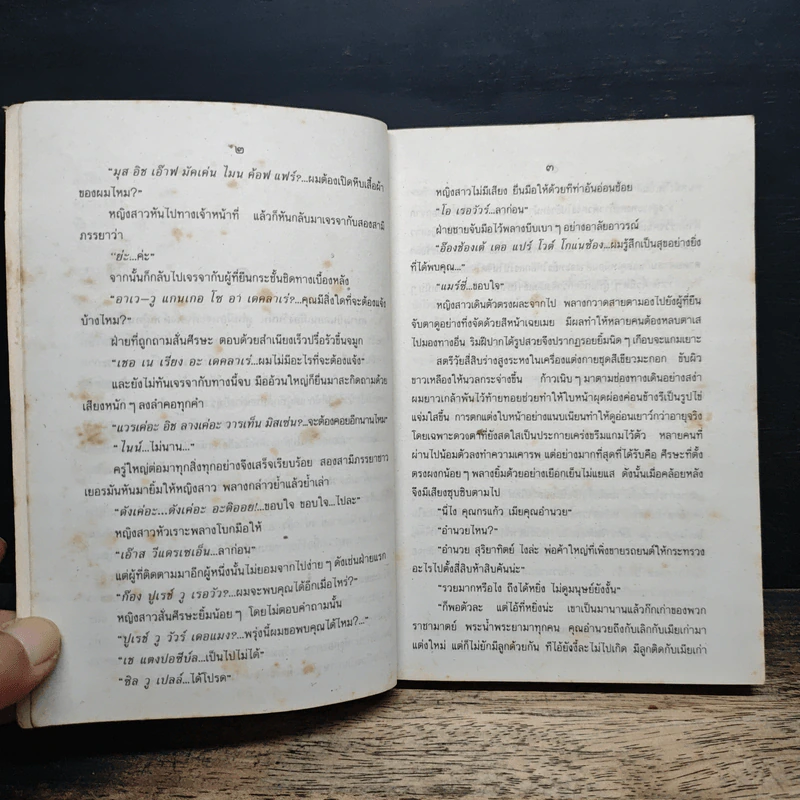 ๒
"มุส อิช เอ๊าฟ มัคเค่น ไมน ค้อฟ แฟร์?...ผมต้องเปิดหีบเสื้อผ้า
ของผมไหม?"
หญิงสาวหันไปทางเจ้าหน้าที่ แล้วก็หันกลับมาเจรจากับสองสามี
ภรรยาว่า
"ย่ะ...ค่ะ"
จากนั้นก็กลับไปเจรจากับผู้ที่ยืนกระชั้นชิดทางเบื้องหลัง
"อาเว–วู แกนเกอ โช อา เดคลาเร่?...คุณมีสิ่งใดที่จะต้องแจ้ง
บ้างไหม?"
ฝ่ายที่ถูกถามสั่นศีรษะ ตอบด้วยสำเนียงเร็วปรื๋อรัวขึ้นจมูก
"เชอ เน เรียง อะ เดคลาเร่...ผมไม่มีอะไรที่จะต้องแจ้ง"
และยังไม่ทันเจรจากับทางนี้จบ มืออ้วนใหญ่ก็ยื่นมาสะกิดถามด้วย
เสียงหนัก ๆ ลงลำคอทุกคำ
"แวรเค่อะ อิช ลางเค่อะ วารเท็น มิสเซ่น?...จะต้องคอยอีกนานไหม"
"ไนน์...ไม่นาน..."
ครู่ใหญ่ต่อมาทุกสิ่งทุกอย่างจึงเสร็จเรียบร้อย สองสามีภรรยาชาว
เยอรมันหันมายิ้มให้หญิงสาว พลางกล่าวย้ำแล้วย้ำเล่า
"ดังเค่อะ...ดังเค่อะ อะดิออย!...ขอบใจ ขอบใจ...ไปละ"
หญิงสาวหัวเราะพลางโบกมือให้
"เอ๊าส วีแดรเซเอ็น...ลาก่อน"
แต่ผู้ที่ติดตามมาอีกผู้หนึ่งนั้นไม่ยอมจากไปง่าย ๆ ดังเช่นฝ่ายแรก
"ก๊อง ปูเรซ์ วู เรอวัว?...ผมจะพบคุณได้อีกเมื่อไหร่?"
หญิงสาวสั่นศีรษะยิ้มน้อย ๆ โดยไม่ตอบคำถามนั้น
"ปูเรซ์ วู วัวร์ เดอแมง?...พรุ่งนี้ผมขอพบคุณได้ไหม?..."
"เซ แตงปอซีบัล...เป็นไปไม่ได้"
"ซิล วู เปลล์...ได้โปรด"
๓
หญิงสาวไม่มีเสียง ยื่นมือให้ด้วยทีท่าอันอ่อนช้อย
"โอ เรอวัวร์...ลาก่อน"
ฝ่ายชายจับมือไว้พลางบีบเบา ๆ อย่างอาลัยอาวรณ์
"อ๊องช้องเต้ เดอ แปร์ โวต์ โกแน่ซ้อง...ผมรู้สึกเป็นสุขอย่างยิ่ง
ที่ได้พบคุณ..."
"แมร์ซี่...ขอบใจ"
หญิงสาวเดินตัวตรงผละจากไป พลางกวาดสายตามองไปยังผู้ที่ยืน
จับตาดูอย่างทึ่งจัดด้วยสีหน้าเฉยเมย มีผลทำให้หลายคนต้องหลบตาเส
ไปมองทางอื่น ริมฝีปากได้รูปสวยจึงปรากฏรอยยิ้มนิด ๆ เกือบจะแกมเยาะ
สตรีวัยสี่สิบร่างสูงระหงในเครื่องแต่งกายชุดสีเขียวมะกอก ขับผิว
ขาวเหลืองให้นวลกระจ่างขึ้น ก้าวเนิบ ๆ มาตามช่องทางเดินอย่างสง่า
ผมยาวเกล้าพันไว้ท้ายทอยช่วยทำให้ใบหน้าผุดผ่องค่อนข้างรีเป็นรูปไข่
แจ่มใสขึ้น การตกแต่งใบหน้าอย่างแนบเนียนทำให้ดูอ่อนเยาว์กว่าอายุจริง
โดยเฉพาะดวงตาที่ยังสดใสเป็นประกายเคร่งขรึมแกมไว้ตัว หลายคนที่
ผ่านไปน้อมตัวลงทำความเคารพ แต่อย่างมากที่สุดที่ได้รับคือ ศีรษะที่ตั้ง
ตรงผงกน้อย ๆ พลางยิ้มด้วยอย่างเยือกเย็นไม่แยแส ดังนั้นเมื่อคล้อยหลัง
จึงมีเสียงซุบซิบตามไป
"นี่ไง คุณกรแก้ว เมียคุณอำนวย"
"อำนวยไหน?"
"อำนวย สุริยาทิตย์ ไงล่ะ พ่อค้าใหญ่ที่เพิ่งขายรถยนต์ให้กระทรวง
อะไรไปตั้งสี่สิบห้าสิบคันน่ะ"
"รวยมากหรือไง ถึงได้หยิ่ง ไม่ดูมนุษย์ยังงั้น"
"ก็พอตัวละ แต่ไอ้ที่หยิ่งน่ะ เขาเป็นมานานแล้วก๊กเก่าของพวก
ราชามาตย์ พระน้ำพระยามาทุกคน คุณอำนวยถึงกับเลิกกับเมียเก่ามา
แต่งใหม่ แต่ก็ไม่ยักมีลูกด้วยกัน ที่ไอ้ยังงี้ละไม่ไปเกิด มีลูกติดกับเมียเก่า